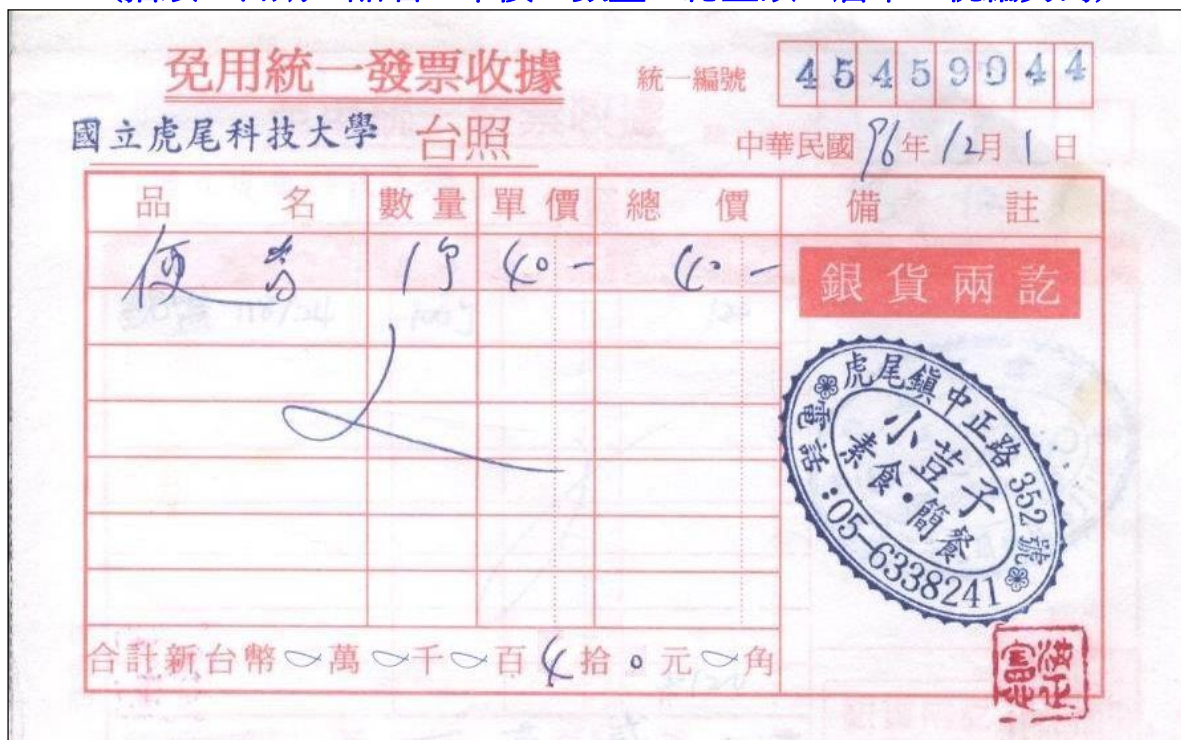 免用統一發票收據
統一編號 45459944
國立虎尾科技大學 台照
中華民國 96年 12月 1 日
品名 數量 單價 總價 備註
便當 1份 40- 40-
銀貨兩訖
虎尾鎮中正路352號
小荳子
素食・簡餐
電話:05-6338241
合計新台幣 0萬 0千 0百 4拾 0元 0角